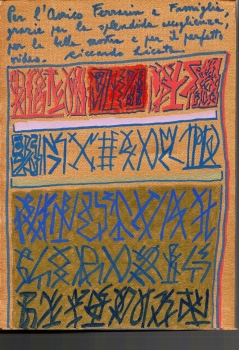 Per l'Amico Ferrarin e Famiglia,
grazie per la splendida accoglienza,
per la bella mostra e per il perfetto
video. Riccardo Licata